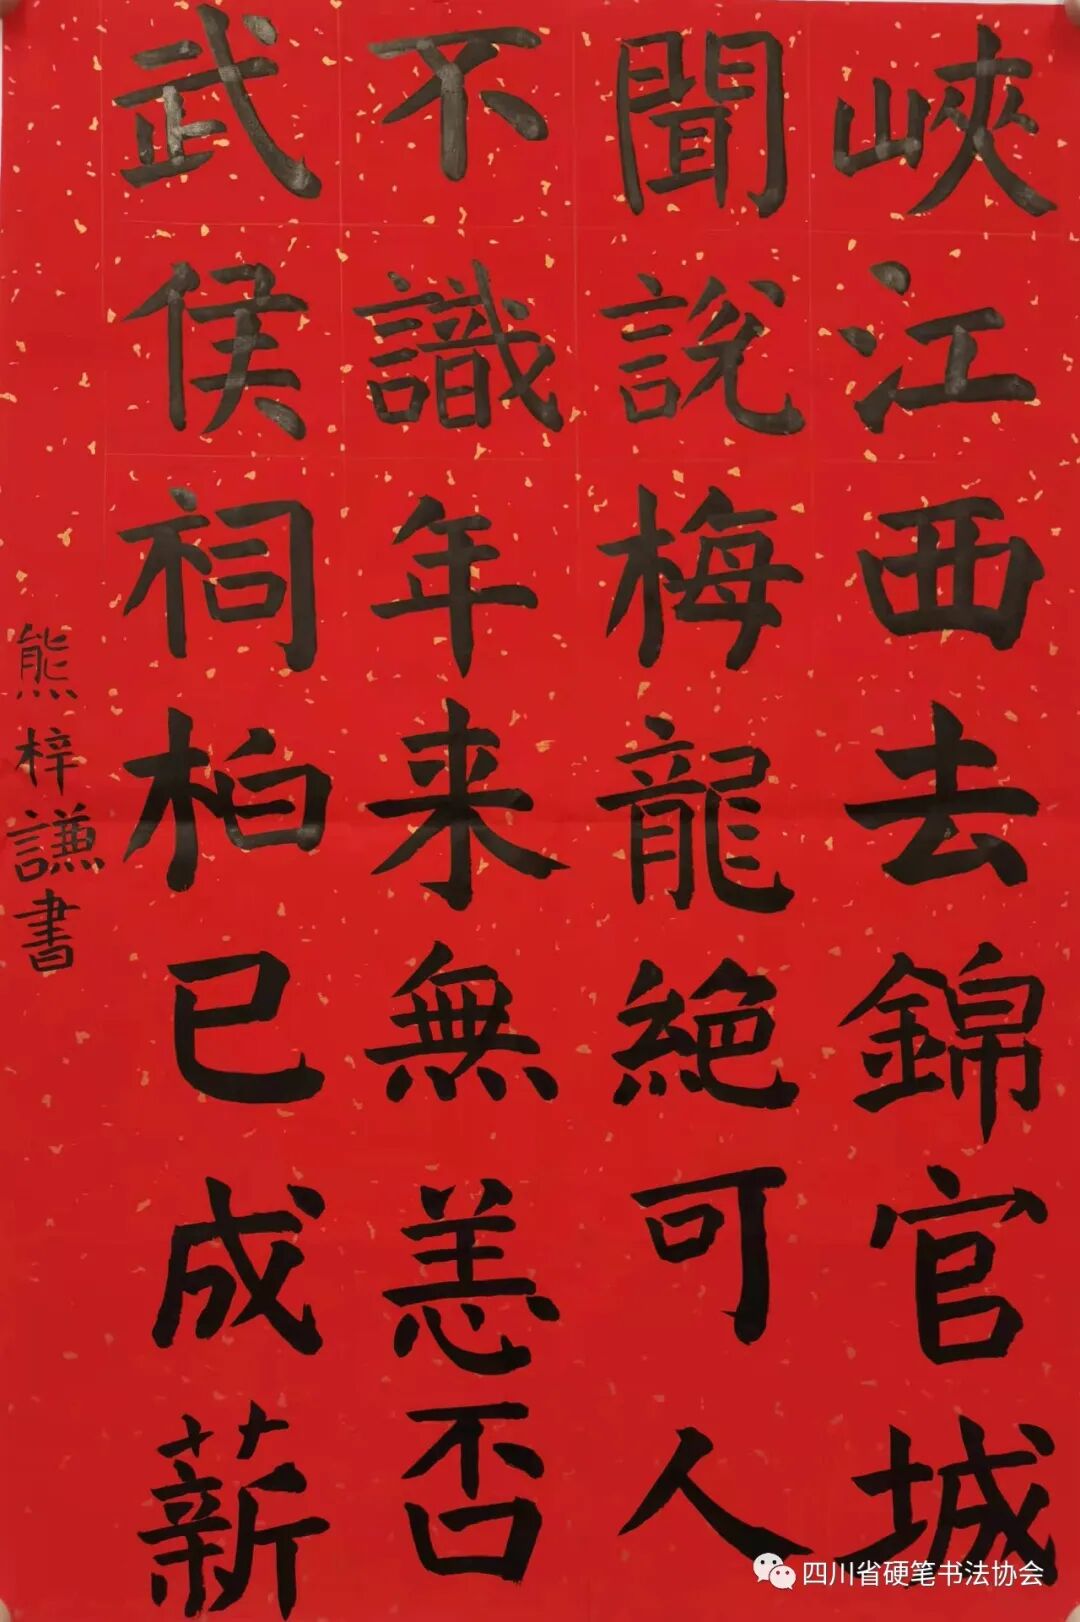 峽江西去錦官城
聞説梅龍絕可人
不識年来無恙否
武侯祠柏已成薪
熊梓謙書
四川省硬笔书法协会